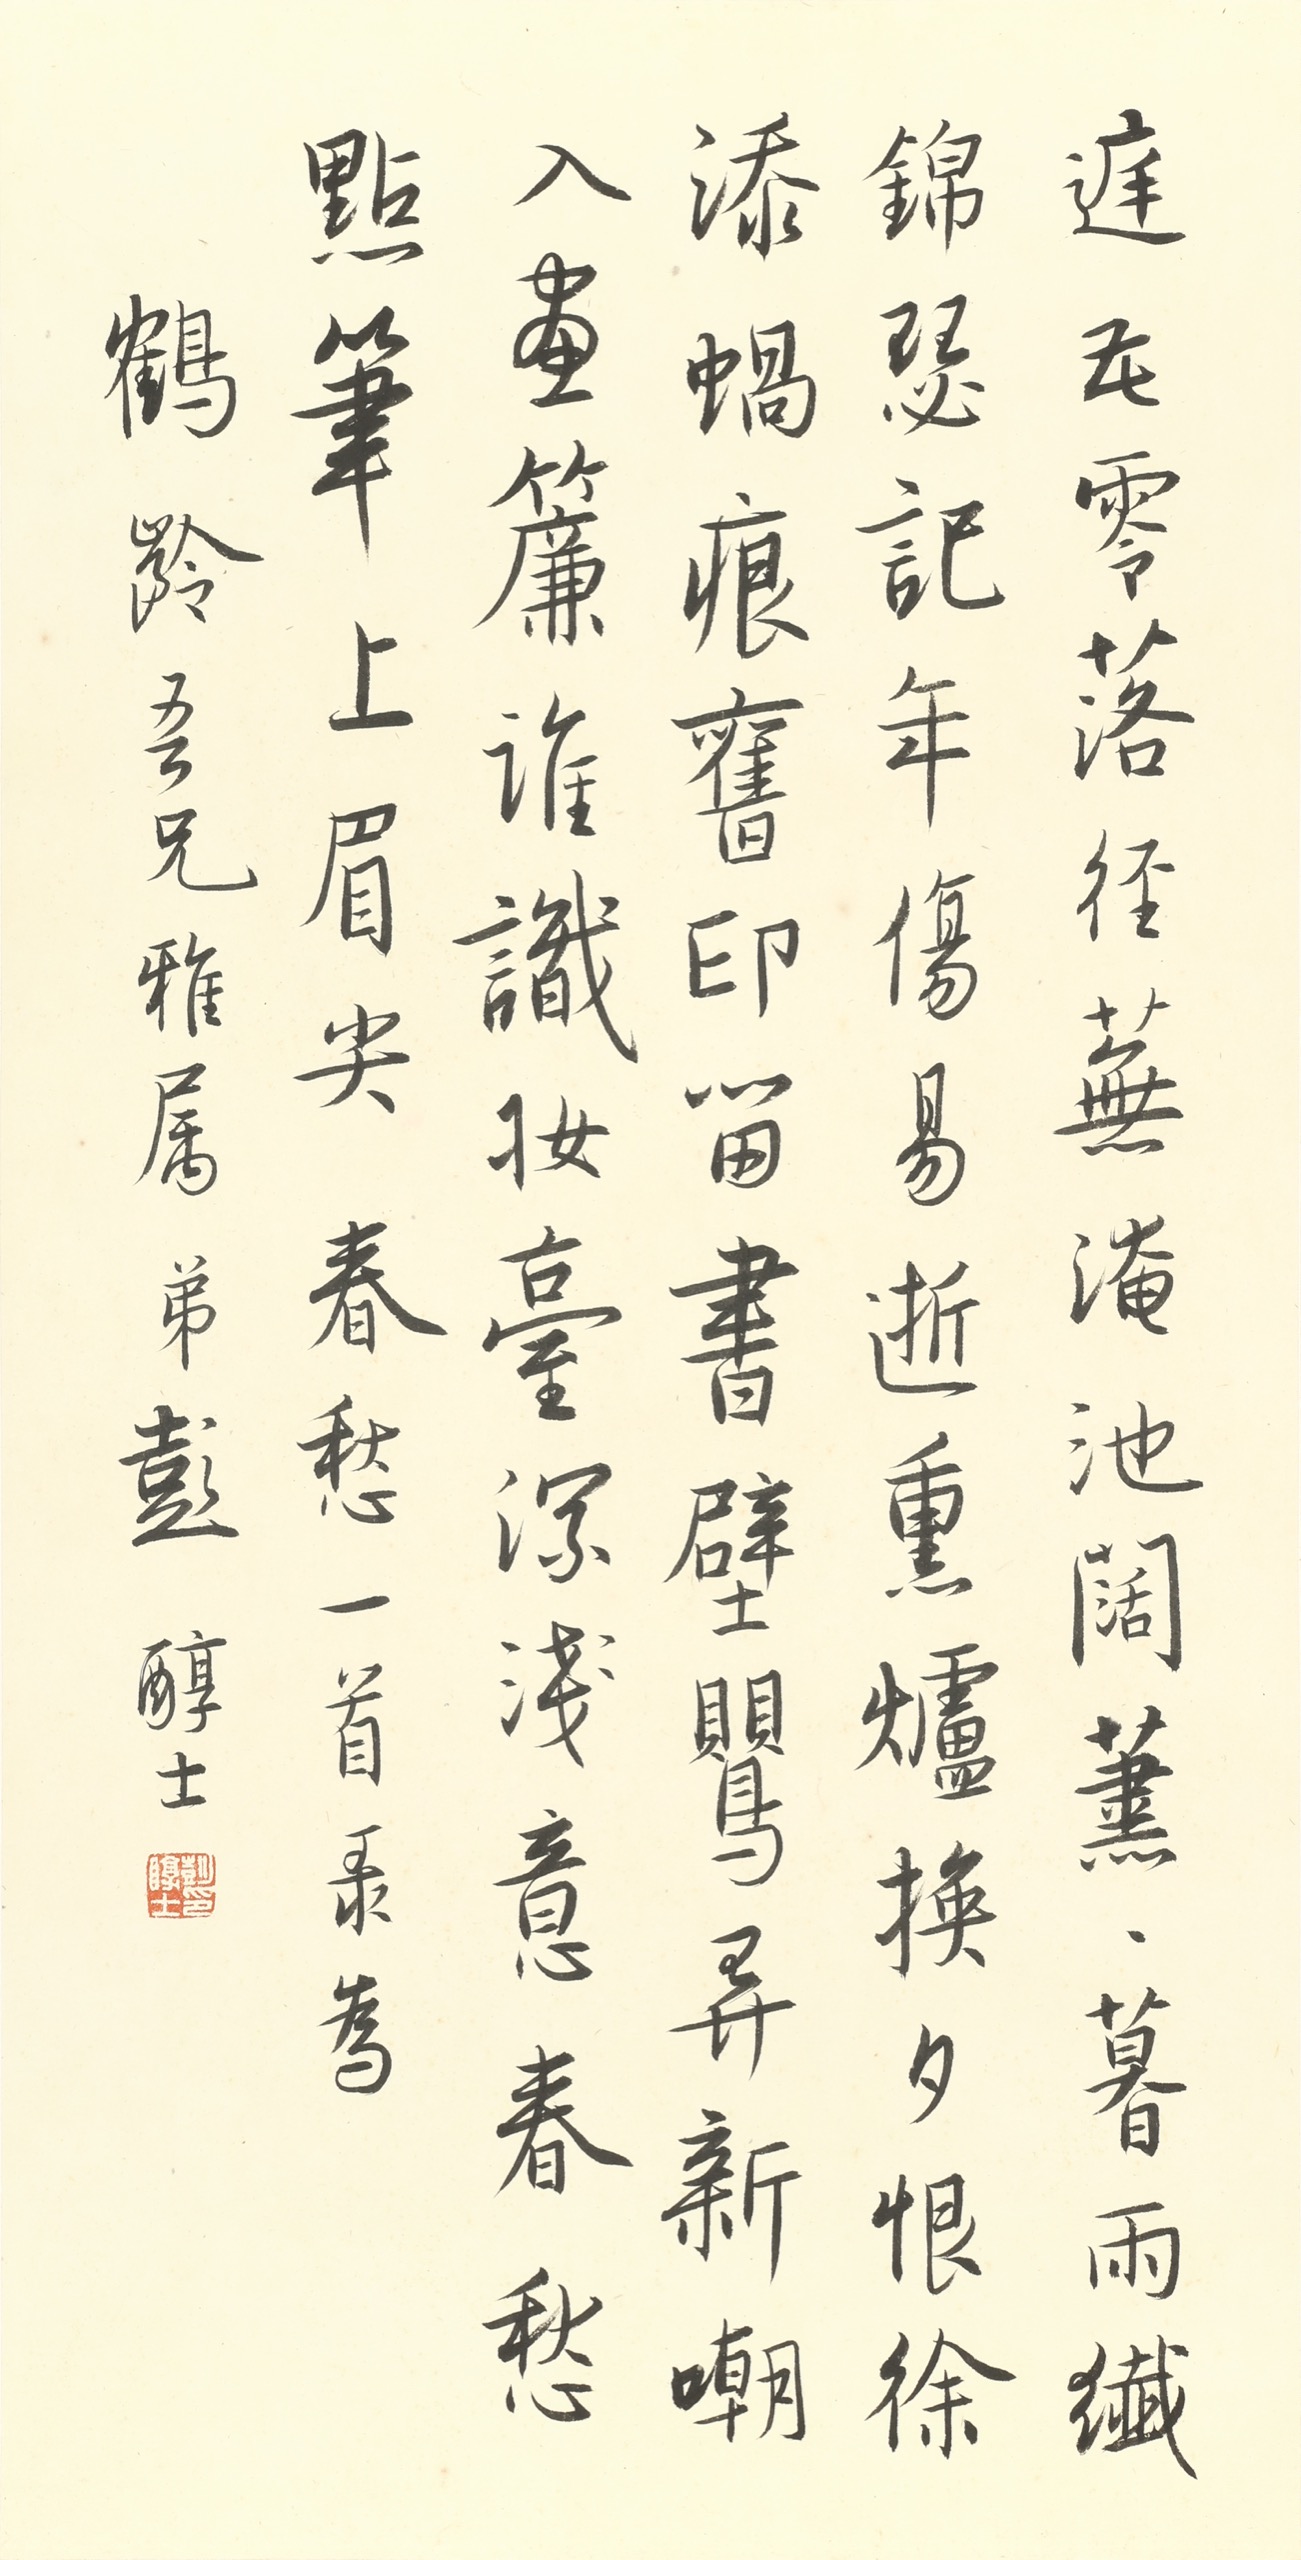 庭花零落徑蕪淹池闊蕭〻暮雨纖
錦瑟記年傷易逝熏爐換夕恨徐
添蝸痕舊印留書壁鸎弄新嘲
入畫簾誰識妝臺深淺意春愁
點筆上眉尖 春愁一首录為
鶴齡吾兄雅属 弟彭醇士
彭醇士印